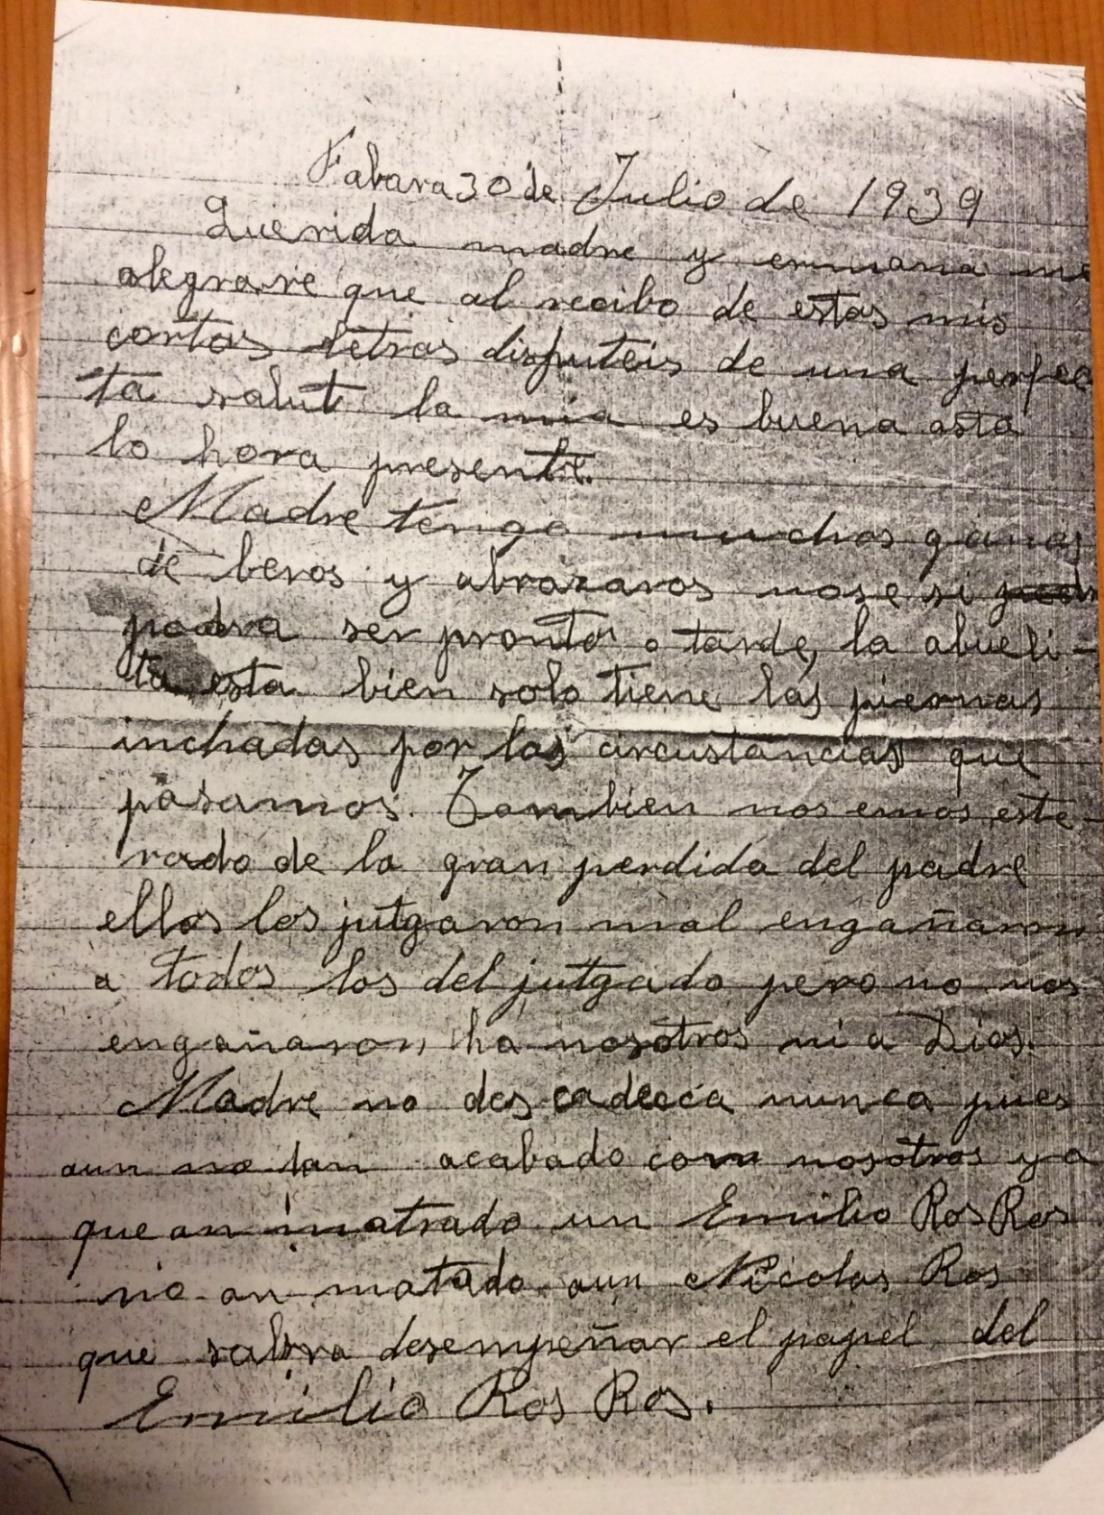 Fabara 30 de Julio de 1939
Querida madre y ermana me
alegrare que al recibo de estas mis
cortas letras disfruteis de una perfec
ta salut la mia es buena asta
la hora presente.
Madre tengo muchas ganas
de beros y abrazaros nose si
podra ser pronto o tarde, la abueli-
ta esta bien solo tiene las piernas
inchadas por las circustancias que
pasamos. Tambien nos emos ente-
rado de la gran perdida del padre
ellos los jutgaron mal engañaron
a todos los del jutgado pero no nos
engañaron ha nosotros ni a Dios.
Madre no des cadeeca nunca pues
aun no an acabado com nosotros ya
que an matado un Emilio Ros Ros
no an matado aun Nicolas Ros
que sabra desempeñar el papel del
Emilio Ros Ros.